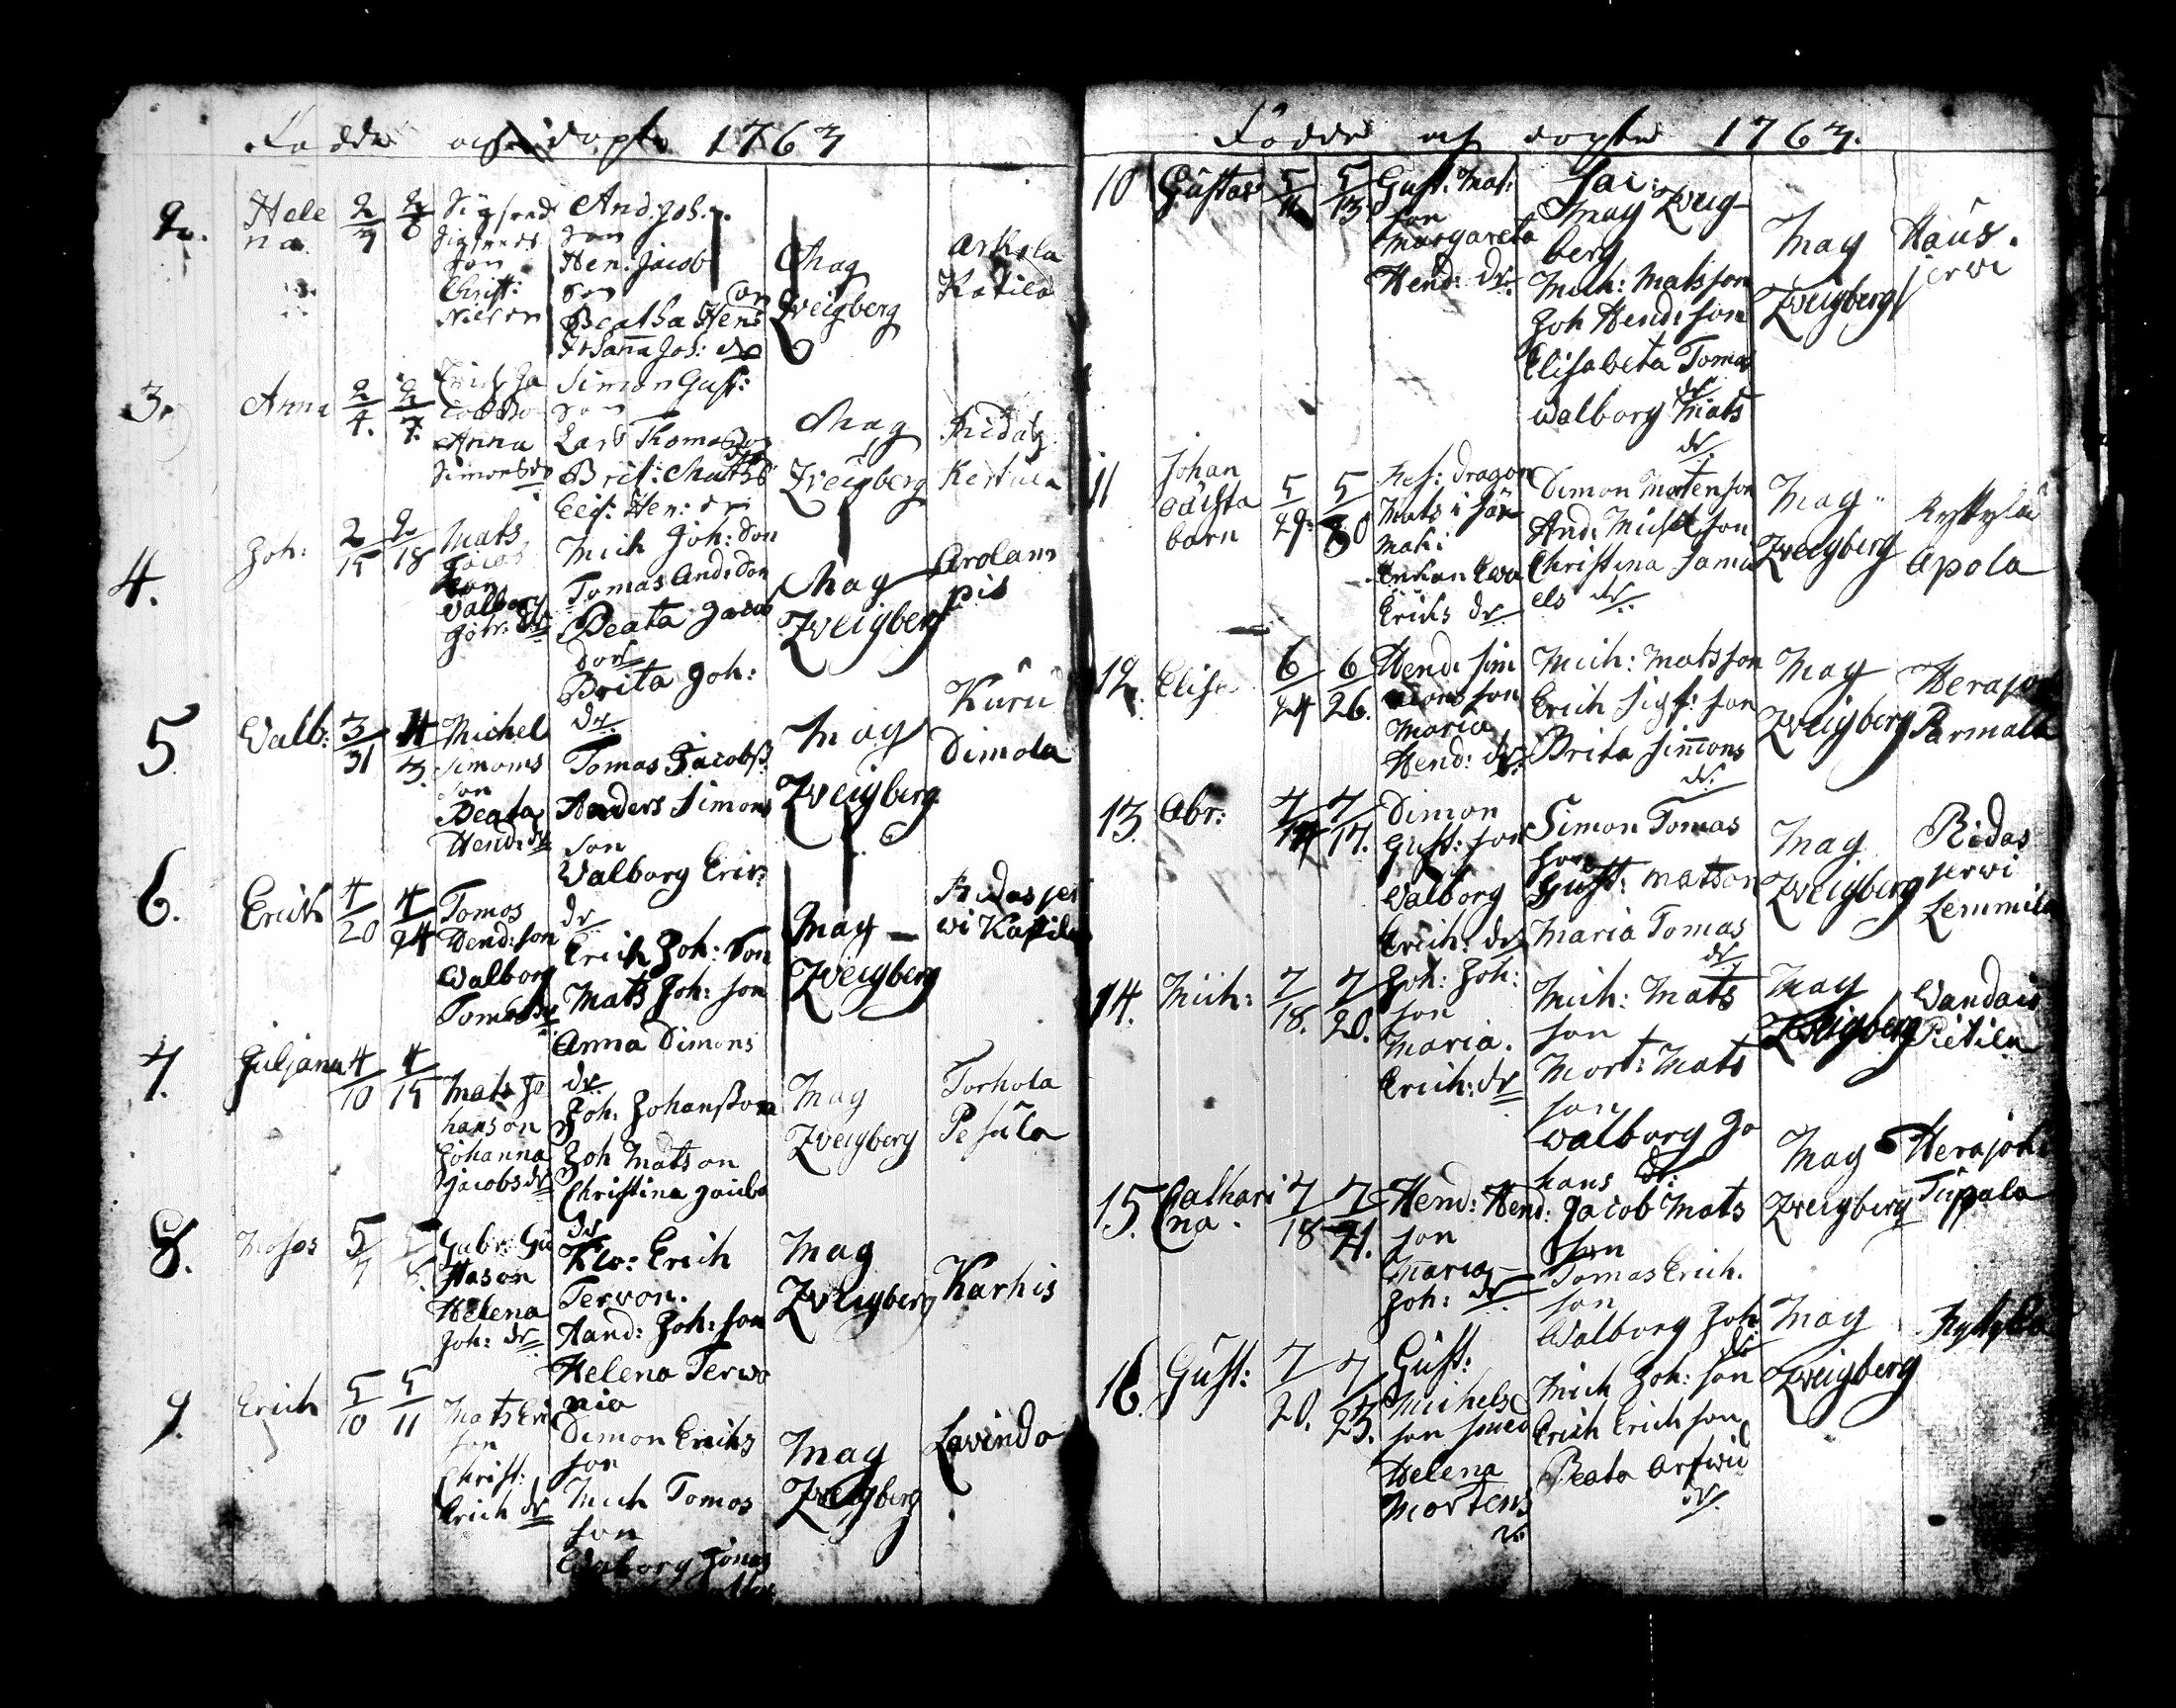 Födde och döpte 1763
2. Helena 2/7 2/8
Sigfred Sigfreds son Christ: Nilsson
And: Joh. son
Hen. Jacob son
Beatha Hen:
Johana Joh: dr
Mag Zweigberg
Arhola Katila
3. Anna 2/4. 2/7.
Erich Ja cobsso Anna Simonsdr
Simon Gust: son
Lars Thomasson
Brit: Mathsdr
Elis: Hen: dr
Mag Zweigberg
4. Joh: 2/15 2/18
Mats Jacobs son Walborg Göhr: dr
Mich Joh: Son
Tomas And: Son
Beata Jacobs dotr
Brita Joh: dr
Mag Zweigberg
Arolam pis
5. Walb: 3/31 4/3.
Michel Simons son Beata Hend: dr
Tomas Jacobss.
Anders Simons son
Walborg Eric: dr
Mag Zweigberg
Kuru Simola
6. Erich 4/20 4/24
Tomos Hend: son Walborg Tomasdr
Erich Joh: Son
Mats Joh: son
Anna Simons dr
Mag Zweigberg
Ridasjer wi Katila
7. Juljana 4/10 4/15
Mats Jo hanson Johanna Jacobsdr
Joh: Johansson
Joh Matson
Christina Jacobs dr
Mag Zweigberg
Torhola Pesula
8. Moses 5/7 5/8.
Gabr: Gu stason Helena Joh: dr
Klo: Erich Terwon.
Aand: Joh: son
Helena Terwo nia
Mag Zweigberg
Karhis
9. Erich 5/10 5/11
Mats Eric son Christ: Erich dr
Simon Erichs son
Mich Tomos son
Walborg Jönas dr
Mag Zweigberg
Lavindo
Födde och döpte 1763.
10 Gustav 5/11 5/13.
Gust: Mat: son Margareta Hend: dr
Sac: Mag Zweig-
berg
Mich: Matsson
Joh Hend: son
Elisabeta Tomas dr
Walborg Mats dr.
Mag Zweigberg
Haus. jerwi
11 Johan oächta barn 5/29. 5/30
Ref: dragon Mats i Sär maki Enkan Ewa Erichs dr
Simon Mortenson
And: Michel son
Christina Samu els dr
Mag Zweigberg
Ryttylä Apola
12. Elisa 6/24 6/26.
Hend: Sim mons son Maria Hend: dr
Mich: Matsson
Erich Sigf: son
Brita Simmons dr.
Mag Zweigberg
Herajoki Parmala
13. Abr: 7/14 7/17.
Simon Gust: son Walborg Erich: dr
Simon Tomas son
Gust: Matson
Maria Tomas dr
Mag Zweigberg
Ridas jerwi Lemmila
14. Mich: 7/18. 7/20.
Joh: Joh: son Maria. Erich: dr
Mich: Mats son
Mort: Mats son
Walborg Jo hans dr:
Mag Zweigberg
Wandais Pietila
15. Cathari na. 7/18 7/21.
Hend: Hend: son Maria Joh: dr
Jacob Mats son
Tomas Erich. son
Walborg Joh: dr
Mag Zweigberg
Herajoki Tuppala
16. Gust: 7/20. 7/23.
Gust: Michels son smed Helena Mortens dr
Mich Joh: son
Erich Erich son
Beata Arfwid dr.
Mag Zweigberg
Rytylä